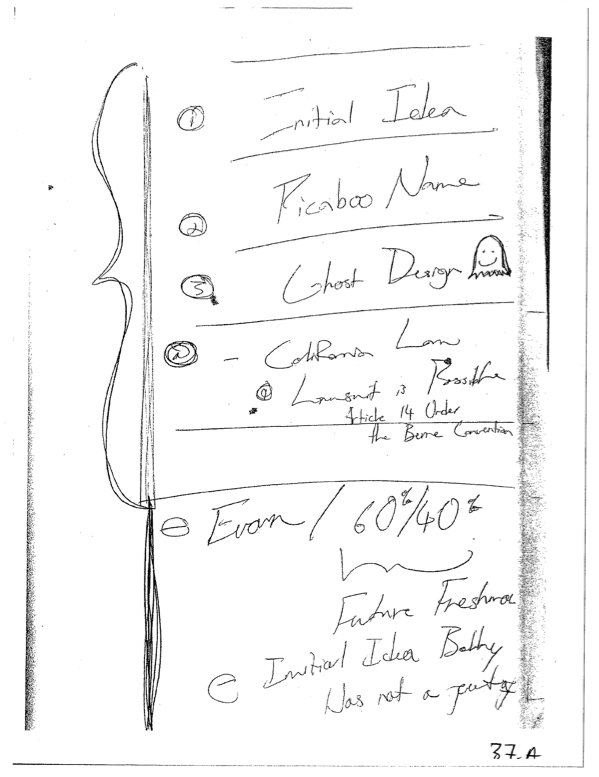 ① Initial Idea
② Picaboo Name
③ Ghost Design
ⓐ - California Law
ⓐ Lawsuit is Possible
Article 14 Under
the Berne Convention
Evan / 60%/40%
Future Freshman
Initial Idea Bobby
Was not a party
37.A